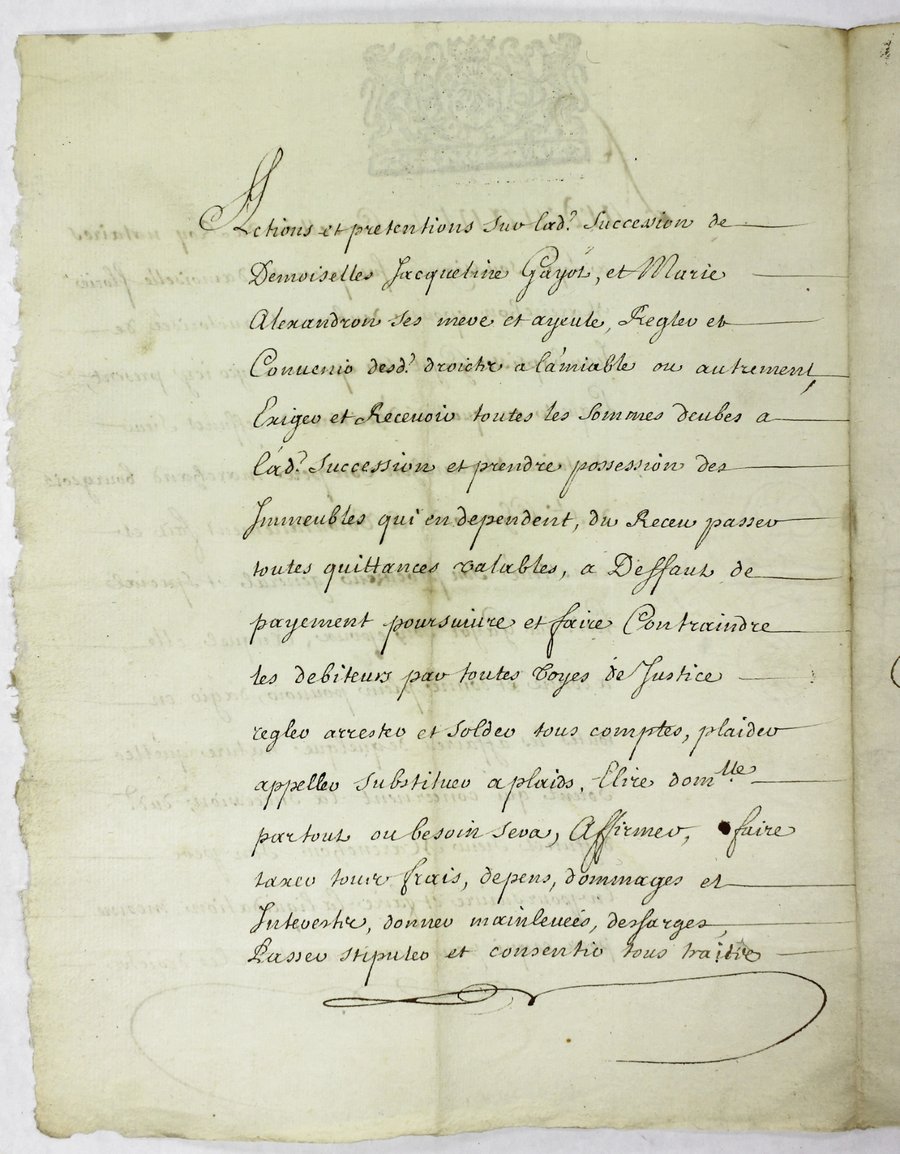 Actions et pretentions sur lad.e Succession de
Demoiselles Jacqueline Gayot, et Marie
Alexandron ses mere et ayeule, Regler et
Convenir desd.s droicts a l'amiable ou autrement,
Exiger et Recevoir toutes les sommes deubes a
lad.e Succession et prendre possession des
Immeubles qui en dependent, du Receu passer
toutes quittances valables, a Deffaut de
payement poursuivre et faire Contraindre
les debiteurs par toutes voyes de Justice
regler arrester et solder tous comptes, plaider
appeller substituer a plaids, Elire dom.lle
partout ou besoin sera, Affirmer, faire
taxer tous frais, depens, dommages et
Interests, donner mainlevées, descharges,
Passer stipuler et consentir tous traités